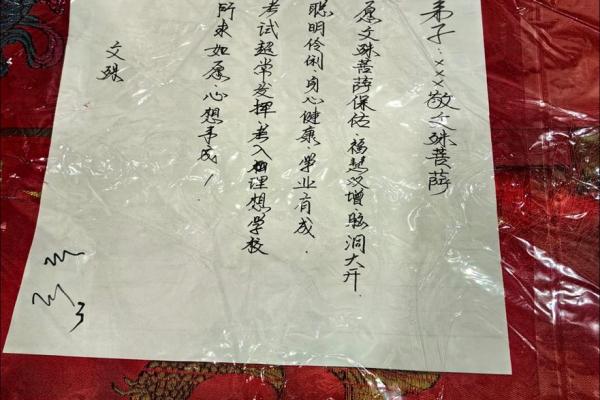 弟子:×××敬文殊菩萨
愿文殊菩萨保佑、福慧双增、脑洞大开
聪明伶俐、身心健康、学业有成、
考试超常发挥、考入理想学校
所求如愿、心想事成!
文殊